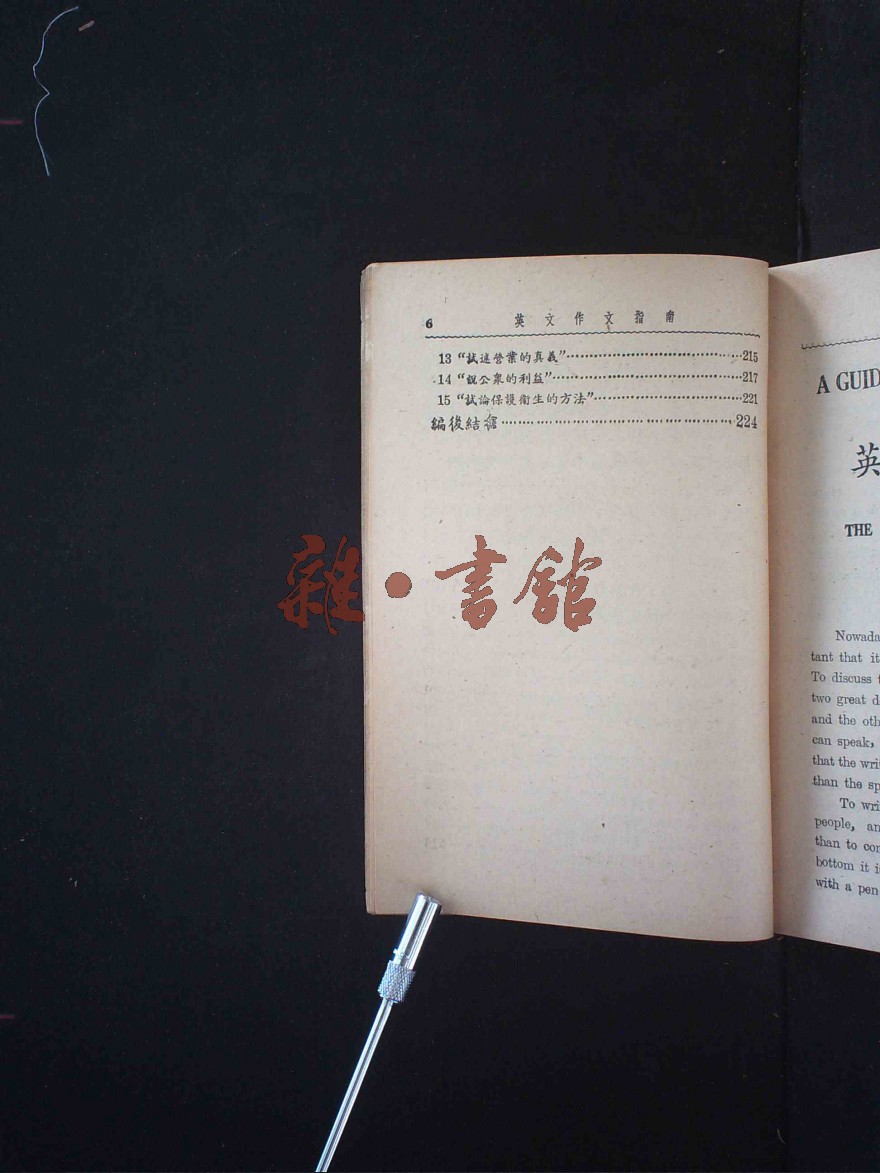 6 英文作文指南
13 “試述營業的真義”·······································215
14 “說公衆的利益”·········································217
15 “試論保護衞生的方法”·································221
編後結
·············································224
雜·書館
A GUID
英
THE
Nowada
tant that it
To discuss
two great d
and the oth
can speak,
that the wri
than the sp
To wri
people, an
than to con
bottom it i
with a pen